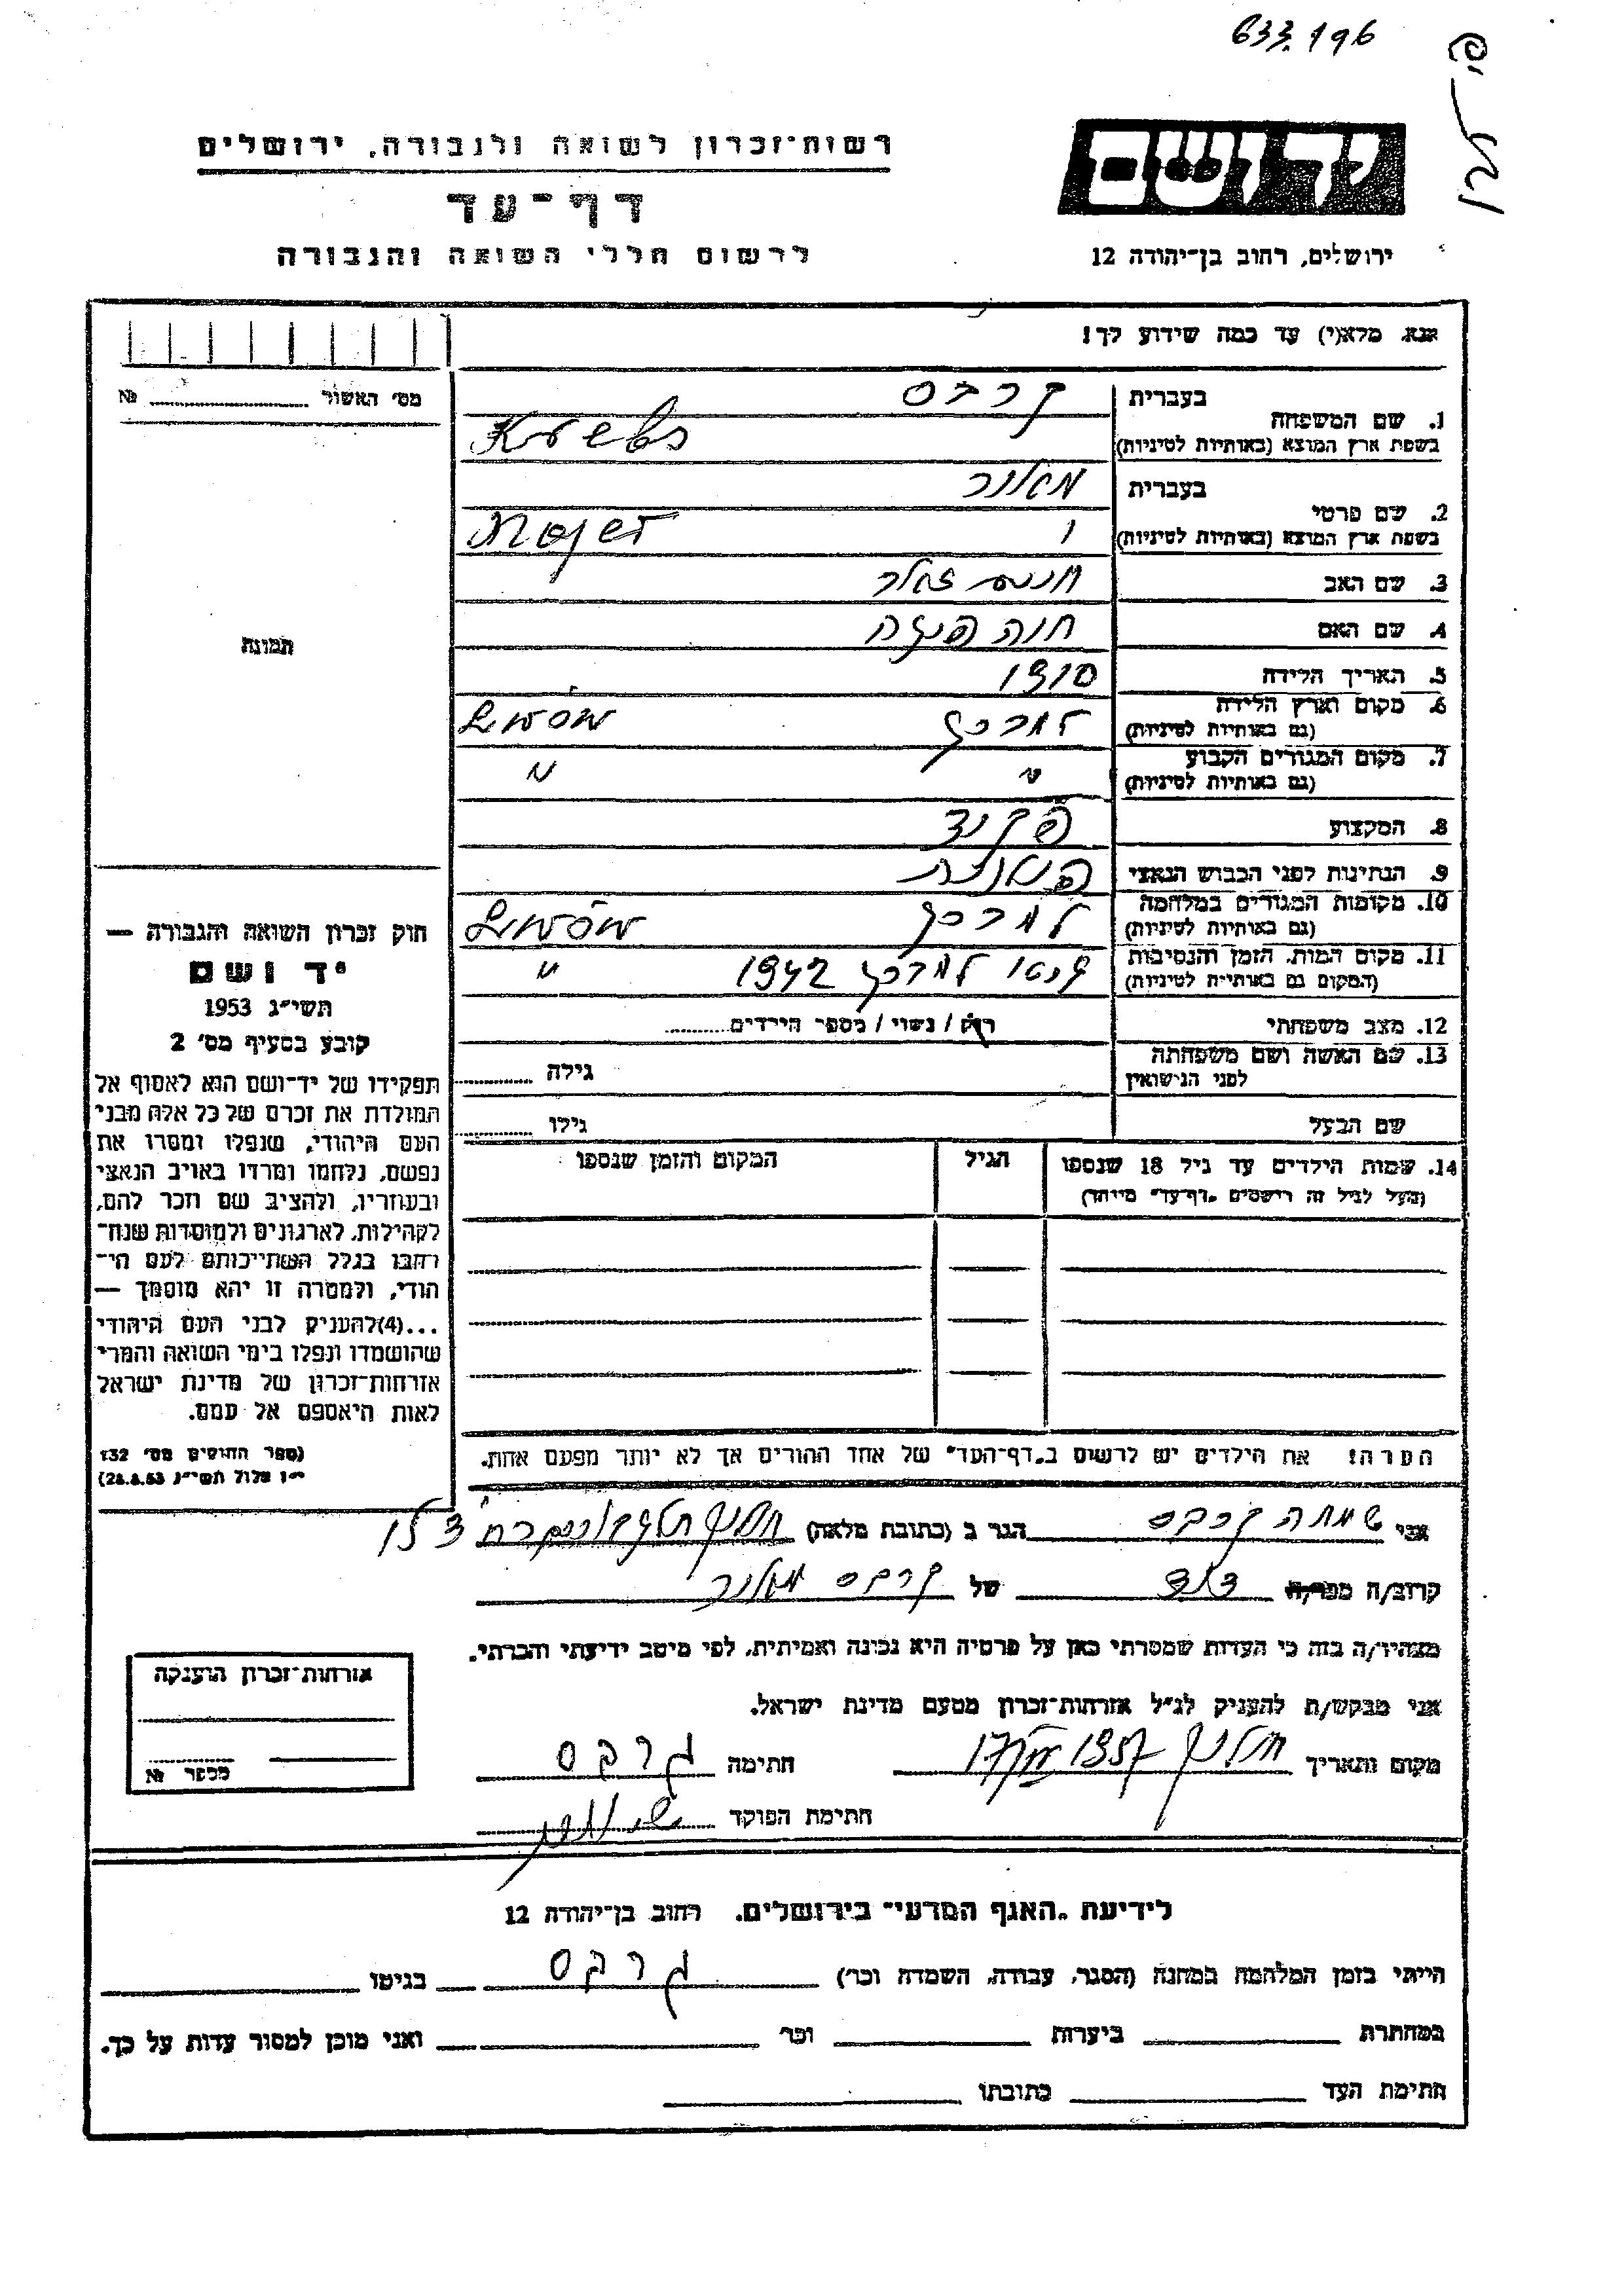 633.196
יד ושם
ירושלים, רחוב בן־יהודה 12
רשות־זכרון לשואה ולגבורה, ירושלים
דף־עד
לרשום חללי השואה והגבורה
אנא מלא(י) עד כמה שידוע לך!
מס׳ האשור № 
תמונה
1. שם המשפחה
בעברית קרבס
בשפת ארץ המוצא (באותיות לטיניות) Krebs
2. שם פרטי
בעברית מאיר
בשפת ארץ המוצא (באותיות לטיניות) Majer
3. שם האב
4. שם האם חנה
5. תאריך הלידה 1910
6. מקום וארץ הלידה
(גם באותיות לטיניות) למברג Lwów
7. מקום המגורים הקבוע
(גם באותיות לטיניות) " "
8. המקצוע פקיד
9. הנתינות לפני הכבוש הנאצי פולנית
10. מקומות המגורים במלחמה
(גם באותיות לטיניות) למברג Lwów
11. מקום המות, הזמן והנסיבות
(המקום גם באותיות לטיניות) גיטו למברג 1942 "
12. מצב משפחתי רווק / נשוי / מספר הילדים
13. שם האשה ושם משפחתה
לפני הנישואין גילה
שם הבעל גילו
14. שמות הילדים עד גיל 18 שנספו הגיל המקום והזמן שנספו
(מעל לגיל זה רושמים „דף־עד״ מיוחד)
הערה: את הילדים יש לרשום ב„דף־העד״ של אחד ההורים אך לא יותר מפעם אחת.
חוק זכרון השואה והגבורה —
יד ושם
תשי״ג 1953
קובע בסעיף מס׳ 2
תפקידו של יד־ושם הוא לאסוף אל
המולדת את זכרם של כל אלה מבני
העם היהודי, שנפלו ומסרו את
נפשם, נלחמו ומרדו באויב הנאצי
ובעוזריו, ולהציב שם וזכר להם,
לקהילות, לארגונים ולמוסדות שנח־
רבו בגלל השתייכותם לעם הי־
הודי, ולמטרה זו יהא מוסמך —
...(4)להעניק לבני העם היהודי
שהושמדו ונפלו בימי השואה והמרי
אזרחות־זכרון של מדינת ישראל
לאות היאספם אל עמם.
(ספר החוקים מס׳ 132
י״ז אלול תשי״ג 28.8.53)
אני שמחה קרבס הגר ב (כתובת מלאה) חולון
קרוב/ה מפר/ה דוד של קרבס מאיר
מצהיר/ה בזה כי העדות שמסרתי כאן על פרטיה היא נכונה ואמיתית, לפי מיטב ידיעתי והכרתי.
אני מבקש/ת להעניק לנ״ל אזרחות־זכרון מטעם מדינת ישראל.
מקום ותאריך חולון 1957 חתימה קרבס
חתימת הפוקד
אזרחות־זכרון הוענקה
מספר №
לידיעת „האגף המדעי״ בירושלים, רחוב בן־יהודה 12
הייתי בזמן המלחמה במחנה (הסגר, עבודה, השמדה וכו׳) קרבס בגיטו
במחתרת ביערות וכו׳ ואני מוכן למסור עדות על כך.
חתימת העד כתובתו